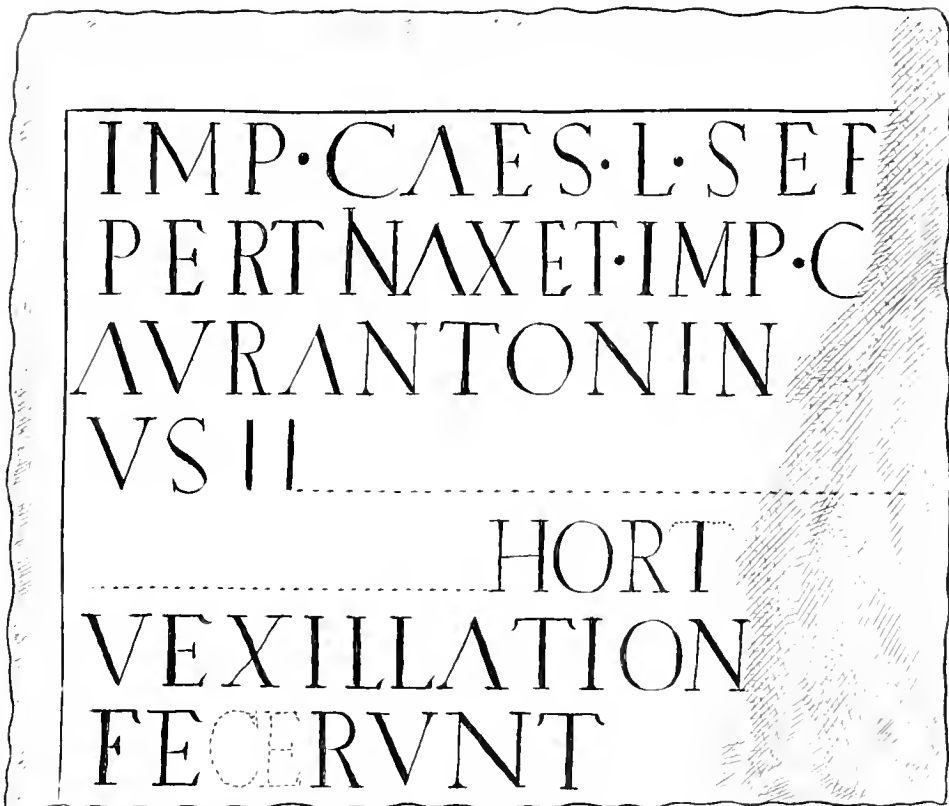 IMP·CAES·L·SEP
PERTINAXET·IMP·C
AVRANTONIN
VSII
HORT
VEXILLATION
FECERVNT